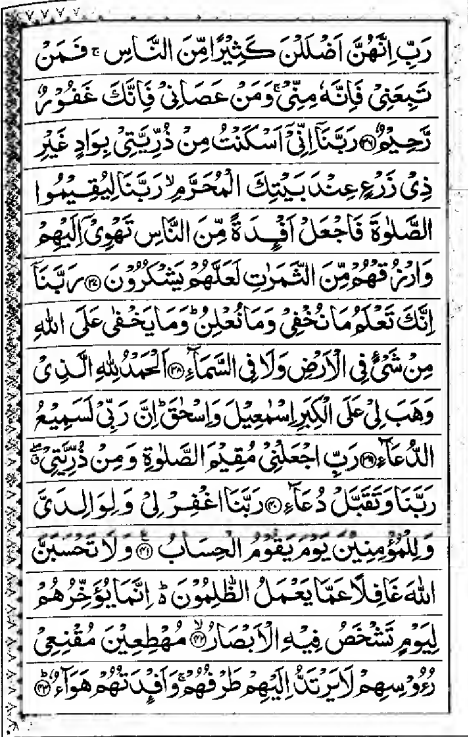 رَبِّ اِنَّهُنَّ اَضْلَلْنَ كَثِيْرًا مِّنَ النَّاسِ ۚ فَمَنْ
تَبِعَنِيْ فَاِنَّهٗ مِنِّيْ ۚ وَمَنْ عَصَانِيْ فَاِنَّكَ غَفُوْرٌ
رَّحِيْمٌ ﴿۳۶﴾ رَبَّنَاۤ اِنِّيْۤ اَسْكَنْتُ مِنْ ذُرِّيَّتِيْ بِوَادٍ غَيْرِ
ذِيْ زَرْعٍ عِنْدَ بَيْتِكَ الْمُحَرَّمِ ۙ رَبَّنَا لِيُقِيْمُوا
الصَّلٰوةَ فَاجْعَلْ اَفْئِدَةً مِّنَ النَّاسِ تَهْوِيْۤ اِلَيْهِمْ
وَارْزُقْهُمْ مِّنَ الثَّمَرٰتِ لَعَلَّهُمْ يَشْكُرُوْنَ ﴿۳۷﴾ رَبَّنَاۤ
اِنَّكَ تَعْلَمُ مَا نُخْفِيْ وَمَا نُعْلِنُ ؕ وَمَا يَخْفٰى عَلَى اللّٰهِ
مِنْ شَيْءٍ فِي الْاَرْضِ وَلَا فِي السَّمَآءِ ﴿۳۸﴾ اَلْحَمْدُ لِلّٰهِ الَّذِيْ
وَهَبَ لِيْ عَلَى الْكِبَرِ اِسْمٰعِيْلَ وَاِسْحٰقَ ؕ اِنَّ رَبِّيْ لَسَمِيْعُ
الدُّعَآءِ ﴿۳۹﴾ رَبِّ اجْعَلْنِيْ مُقِيْمَ الصَّلٰوةِ وَمِنْ ذُرِّيَّتِيْ ۖ
رَبَّنَا وَتَقَبَّلْ دُعَآءِ ﴿۴۰﴾ رَبَّنَا اغْفِرْ لِيْ وَلِوَالِدَيَّ
وَلِلْمُؤْمِنِيْنَ يَوْمَ يَقُوْمُ الْحِسَابُ ﴿۴۱﴾ وَلَا تَحْسَبَنَّ
اللّٰهَ غَافِلًا عَمَّا يَعْمَلُ الظّٰلِمُوْنَ ؕ اِنَّمَا يُؤَخِّرُهُمْ
لِيَوْمٍ تَشْخَصُ فِيْهِ الْاَبْصَارُ ﴿۴۲﴾ۙ مُهْطِعِيْنَ مُقْنِعِيْ
رُءُوْسِهِمْ لَا يَرْتَدُّ اِلَيْهِمْ طَرْفُهُمْ ۚ وَاَفْئِدَتُهُمْ هَوَآءٌ ﴿۴۳﴾ؕ